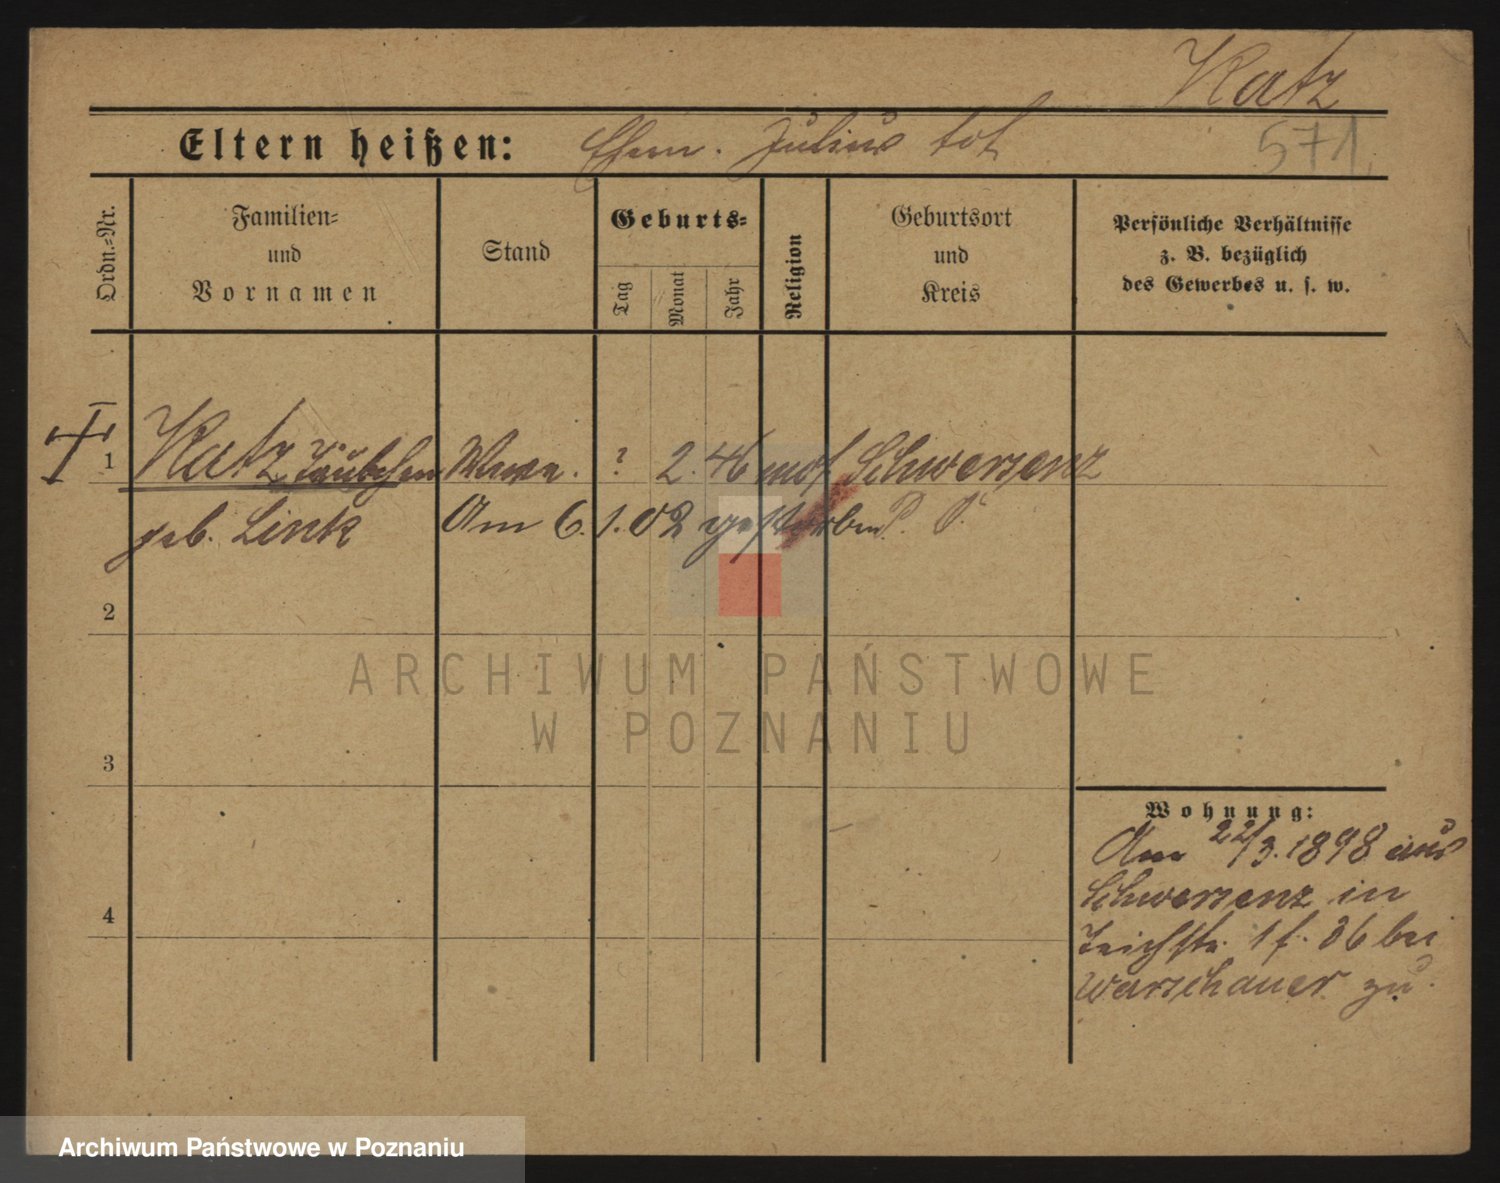 Katz
571.
Eltern heißen: Ehem. Julius tot
Ordn.-Nr.
Familien-
und
Vornamen
Stand
Geburts-
Tag
Monat
Jahr
Religion
Geburtsort
und
Kreis
Persönliche Verhältnisse
z. B. bezüglich
des Gewerbes u. s. w.
1 Katz Täubchen Wwe. ? 2. 46 mos Schwersenz
geb. Link Am 6. 1. 02 gestorben P. P.
2
ARCHIWUM PAŃSTWOWE
W POZNANIU
3
Wohnung:
Am 22/3. 1898 aus
Schwersenz in
Teichstr. 1 f. 36 bei
Warschauer zu.
4
Archiwum Państwowe w Poznaniu